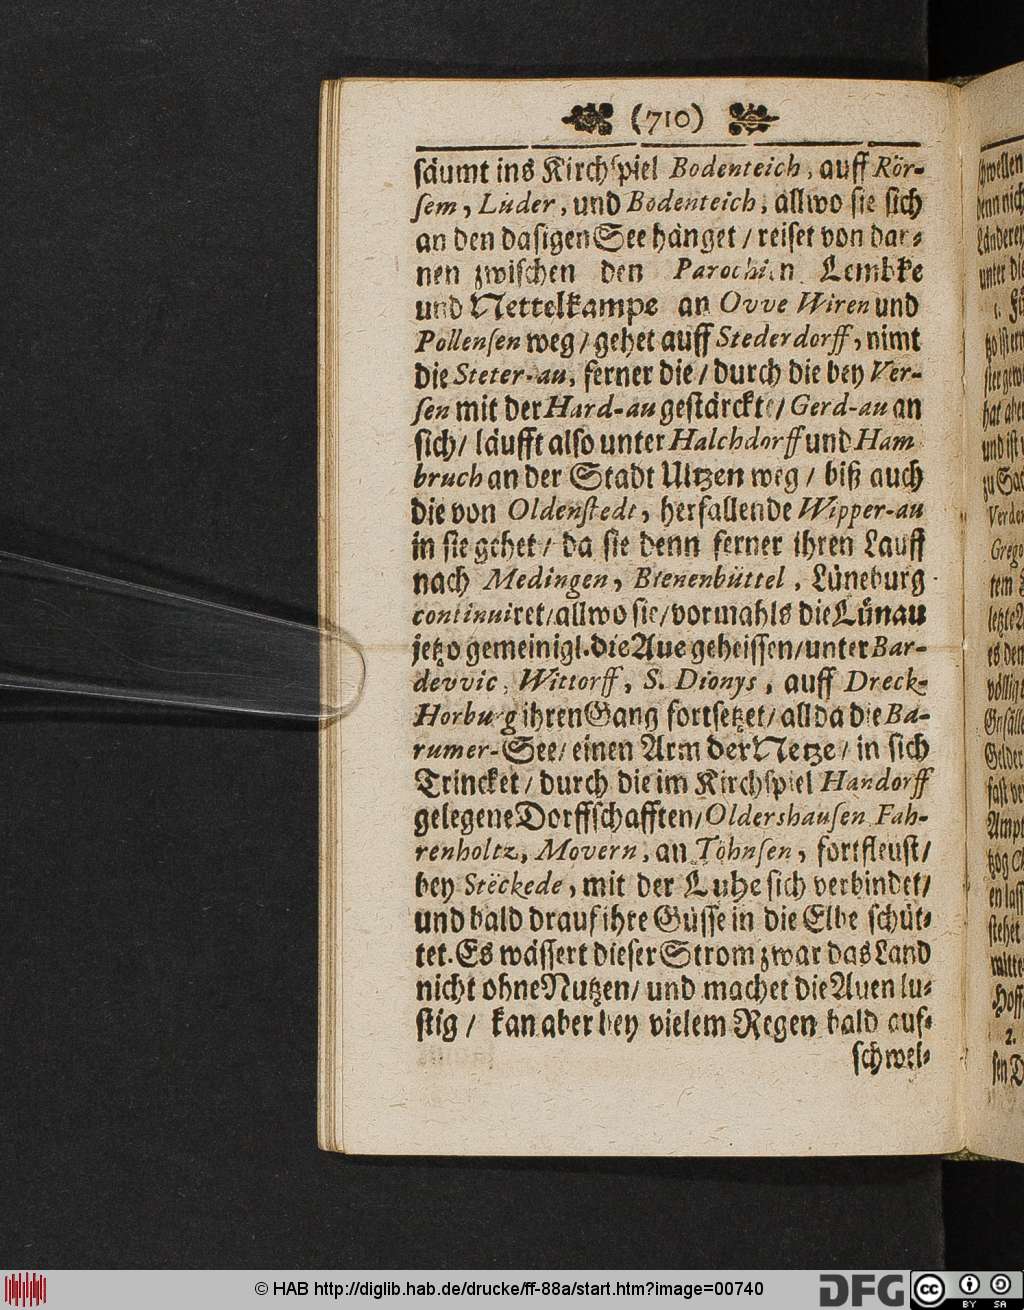 (710)
säumt ins Kirchspiel Bodenteich, auff Rör-
sem, Lüder, und Bodenteich, allwo sie sich
an den dasigen See hänget / reiset von dar-
nen zwischen den Parochien Lembke
und Nettelkampe an Ovve Wiren und
Pollensen weg / gehet auff Stederdorff, nimt
die Steter-au, ferner die / durch die bey Ver-
sen mit der Hard-au gestärckte / Gerd-au an
sich / läufft also unter Halchdorff und Ham
bruch an der Stadt Ultzen weg / biß auch
die von Oldenstedt, herfallende Wipper-au
in sie gehet / da sie denn ferner ihren Lauff
nach Medingen, Bienenbüttel, Lüneburg
continuiret / allwo sie / vormahls die Lünau
jetzo gemeinigl. die Aue geheissen / unter Bar-
devvic, Wittorff, S. Dionys, auff Dreck-
Horburg ihren Gang fortsetzet / allda die Ba-
rumer-See / einen Arm der Netze / in sich
Trincket / durch die im Kirchspiel Handorff
gelegene Dorffschafften / Oldershausen Fah-
renholtz, Movern, an Töhnsen, fortfleust /
bey Stëckede, mit der Luhe sich verbindet /
und bald drauf ihre Güsse in die Elbe schüt-
tet. Es wässert dieser Strom zwar das Land
nicht ohne Nutzen / und machet die Auen lu-
stig / kan aber bey vielem Regen bald auf-
schwel-
© HAB http://diglib.hab.de/drucke/ff-88a/start.htm?image=00740
DFG
cc BY SA